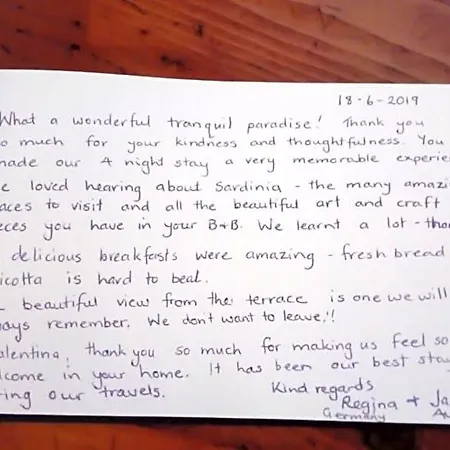 18-6-2019
What a wonderful tranquil paradise! Thank you
so much for your kindness and thoughtfulness. You
made our 4 night stay a very memorable experie
e loved hearing about Sardinia - the many amazi
aces to visit and all the beautiful art and craft
eces you have in your B+B. We learnt a lot - tha
delicious breakfasts were amazing - fresh bread
icotta is hard to beat.
beautiful view from the terrace is one we will
ways remember. We don't want to leave!!
alentina, thank you so much for making us feel so
lcome in your home. It has been our best stay
ring our travels.
Kind regards
Regina + Ja
Germany Au